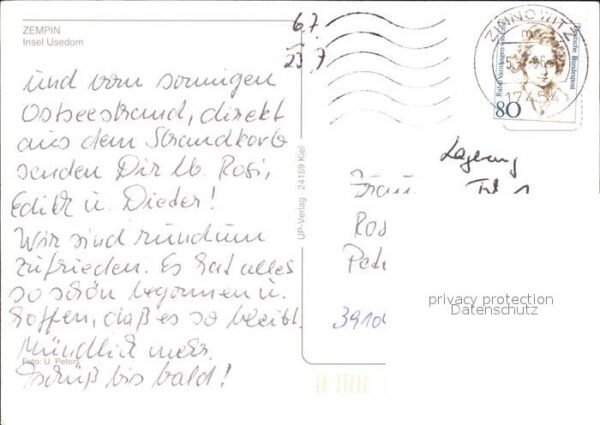 ZEMPIN
Insel Usedom
6.7
23.7
und vom sonnigen
Ostseestrand, direkt
aus dem Strandkorb
senden Dir lb. Rosi,
Edith u. Dieter!
Wir sind rundum
zufrieden. Es hat alles
so schön begonnen u.
hoffen, daß es so bleibt.
Mündlich mehr.
Tschüß bis bald!
Foto: U. Peters
UP-Verlag · 24159 Kiel
ZINNOWITZ
17454
Deutsche Bundespost
Rahel Varnhagen von Ense
80
Lagerung
Frau
Ros
Pet
3910
privacy protection
Datenschutz